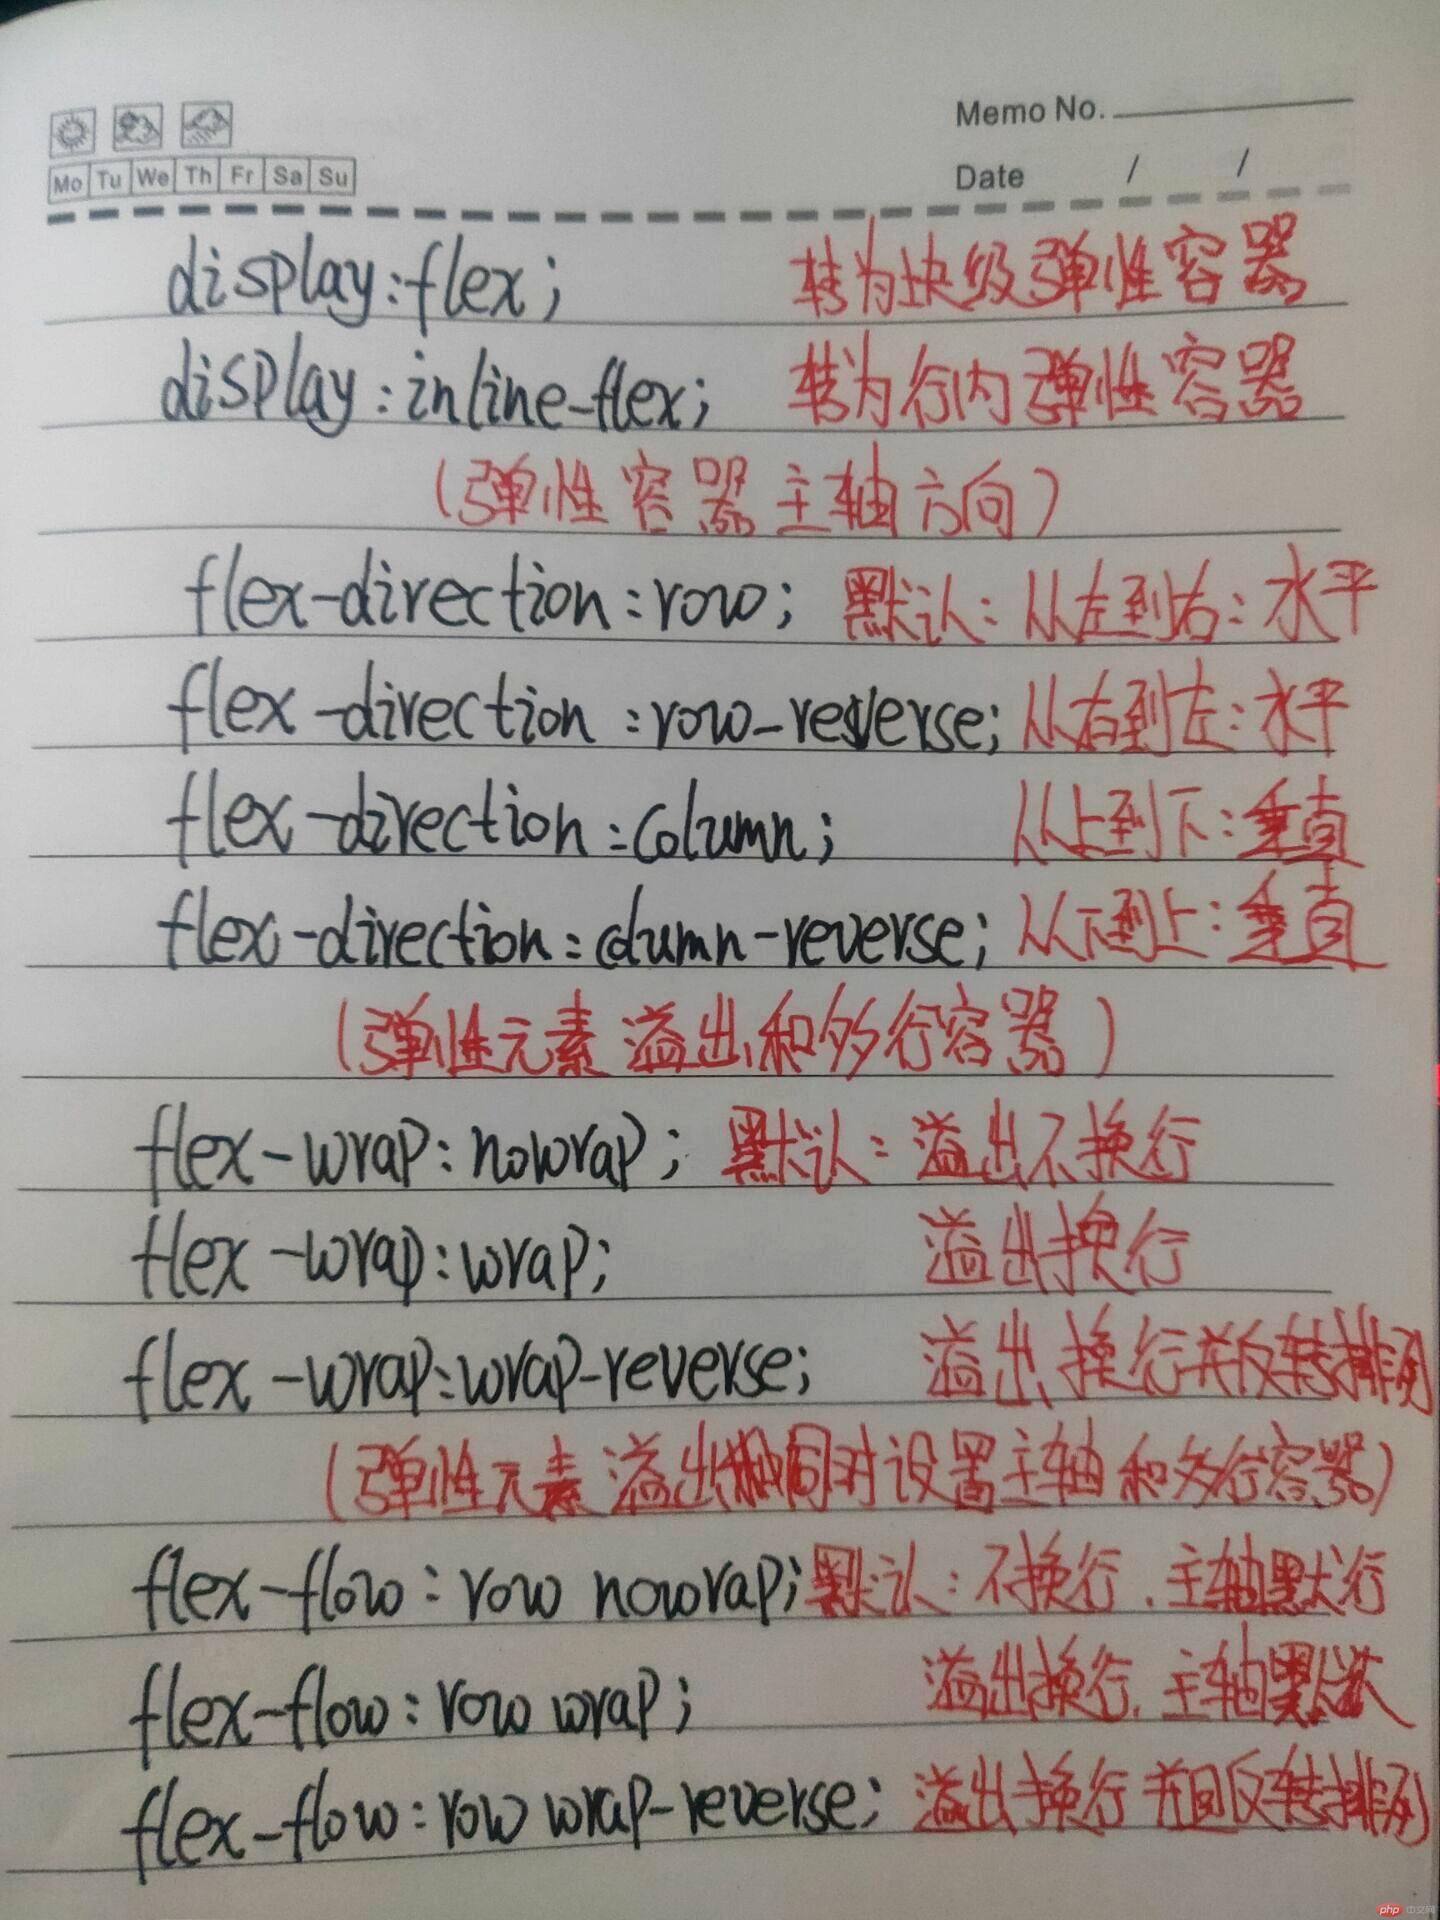 Memo No.
Mo Tu We Th Fr Sa Su
Date / /
display:flex; 转为块级弹性容器
display:inline-flex; 转为行内弹性容器
(弹性容器主轴方向)
flex-direction:row; 默认:从左到右:水平
flex-direction:row-reverse; 从右到左:水平
flex-direction:column; 从上到下:垂直
flex-direction:column-reverse; 从下到上:垂直
(弹性元素溢出和多行容器)
flex-wrap:nowrap; 默认:溢出不换行
flex-wrap:wrap; 溢出换行
flex-wrap:wrap-reverse; 溢出换行并反转排列
(弹性元素溢出同时设置主轴和多行容器)
flex-flow:row nowrap; 默认:不换行,主轴默行
flex-flow:row wrap; 溢出换行,主轴默认
flex-flow:row wrap-reverse; 溢出换行并且反转排列
php 中文网